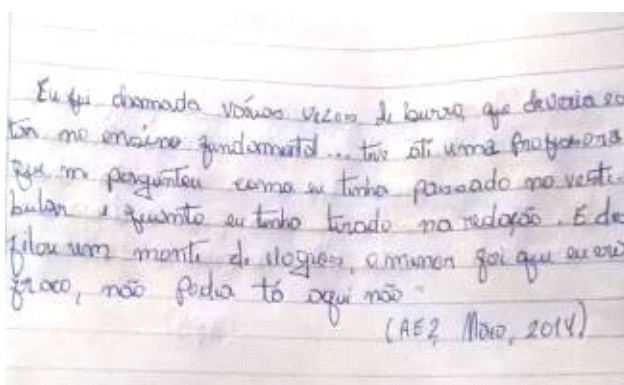 Eu fui chamada várias vezes de burra, que deveria es
tar no ensino fundamental... teve até uma professora
que me perguntou como eu tinha passado no vesti-
bular e quanto eu tinha tirado na redação. E des
filou um monte de elogios, a menor foi que eu era
fraco, não podia tá aqui não
(AE2, Maio, 2014)